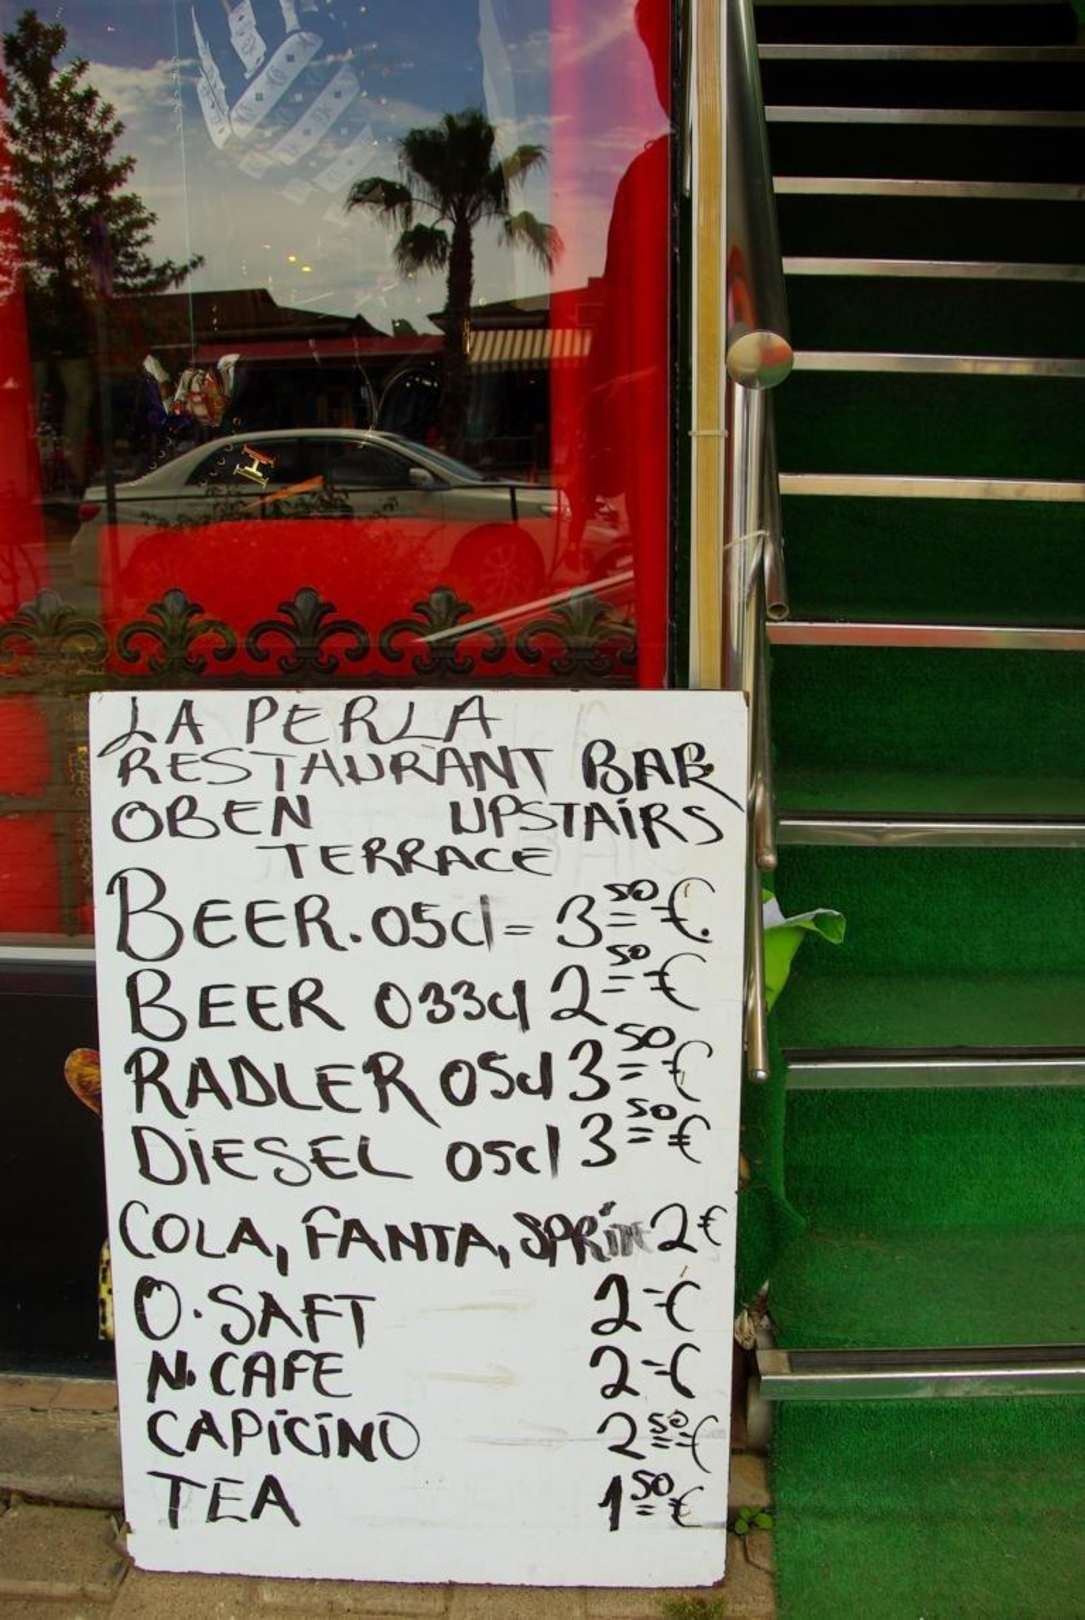 LA PERLA
RESTAURANT BAR
OBEN UPSTAİRS
TERRACE
BEER. 05cl = 3 50 €.
BEER 033cl 2 50 €
RADLER 05cl 3 50 €
DİESEL 05cl 3 50 €
COLA, FANTA, SPRİT 2 €
O. SAFT 2 - €
N. CAFE 2 - €
CAPİCİNO 2 50 €
TEA 1 50 €